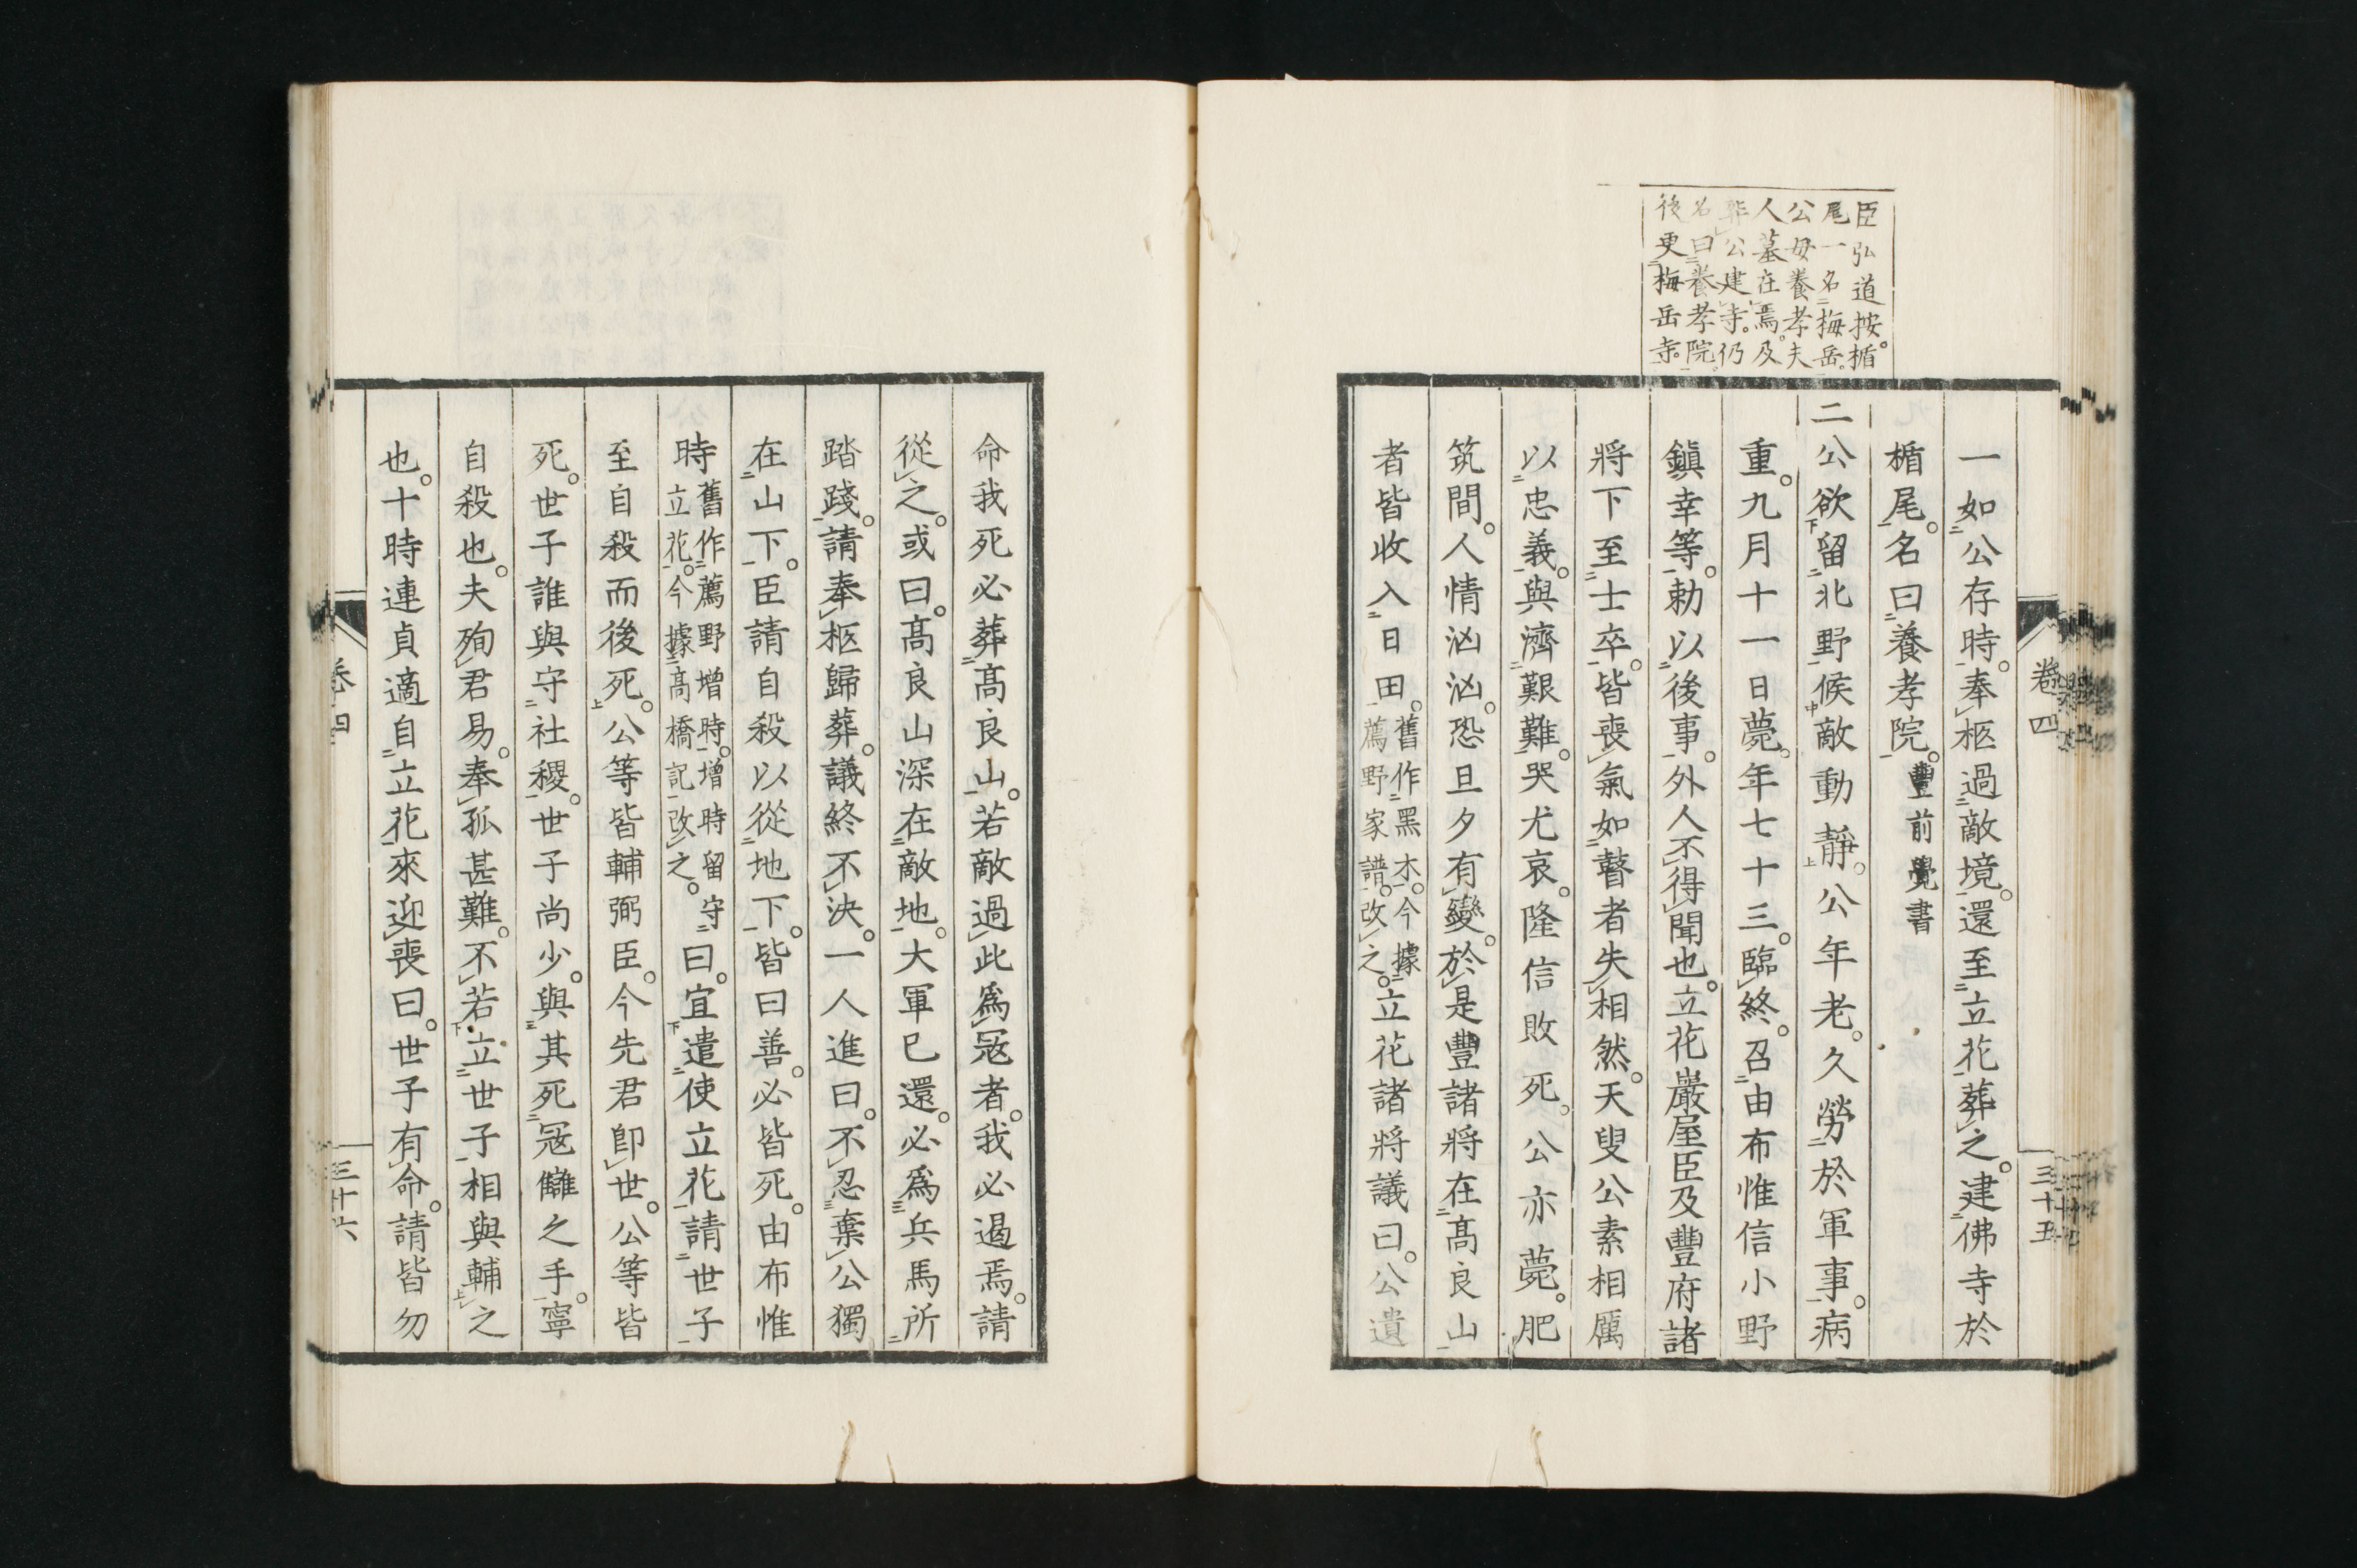 臣弘道按。楯
尾一名梅岳。
公母養孝夫
人墓在焉。及
葬公建寺。仍
名曰養孝院。
後更梅岳寺。
卷四
三十五
一如公存時。奉柩過敵境。還至立花葬之。建佛寺於
楯尾。名曰養孝院。豐前覺書
二公欲留北野候敵動靜。公年老。久勞於軍事。病
重。九月十一日薨。年七十三。臨終。召由布惟信小野
鎮幸等。勅以後事。外人不得聞也。立花巖屋臣及豐府諸
將下至士卒。皆喪氣如瞽者失相然。天叟公素相厲
以忠義。與濟艱難。哭尤哀。隆信敗死。公亦薨。肥
筑間。人情汹汹。恐旦夕有變。於是豐諸將在髙良山
者皆收入日田。舊作黑木。今據薦野家譜。改之。立花諸將議曰。公遺
命我死必葬髙良山。若敵過此爲寇者。我必遏焉。請
從之。或曰。髙良山深在敵地。大軍已還。必爲兵馬所
踏踐。請奉柩歸葬。議終不決。一人進曰。不忍棄公獨
在山下。臣請自殺以從地下。皆曰善。必皆死。由布惟
時舊作薦野增時。增時留守立花。今據髙橋記改之。曰。宜遣使立花請世子
至自殺而後死。公等皆輔弼臣。今先君卽世。公等皆
死。世子誰與守社稷。世子尚少。與其死寇讎之手。寧
自殺也。夫殉君易。奉孤甚難。不若立世子相與輔之
也。十時連貞適自立花來迎喪曰。世子有命。請皆勿
卷四
三十六